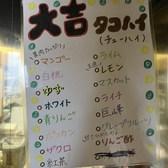 大吉 タコハイ
(チューハイ)
マンゴー
白桃
ゆず
ホワイト
青りんご
ザクロ
紅茶
ライム
レモン
マスカット
ライチ
巨峰
グレープフルーツ
りんご酢